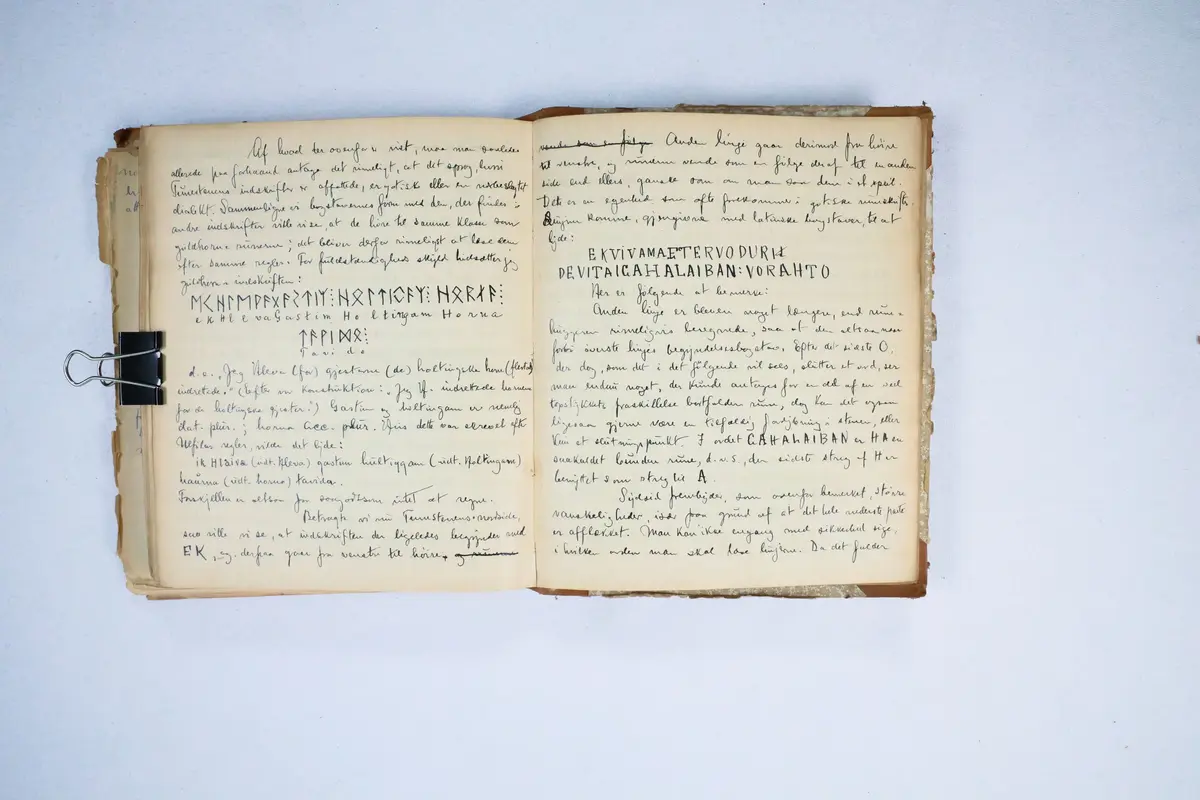 Af hvad der ovenfor er vist, maa man saaledes
allerede fra forhaand antage det rimeligt, at det sprog, hvori
Tunestenens indskrifter er affattede, er gotiske eller en nærbeslægtet
dialekt. Sammenligne vi bogstavernes form med den, der findes i
andre indskrifter ville vi se, at de höre til samme klasse som
guldhornsrunerne; det bliver derfor rimeligst at læse dem
efter samme regler. For fuldstændigheds skyld hidsætter jeg
guldhorns-indskriften:
ᛖᚲᚺᛚᛖᚹᚨᚷᚨᛊᛏᛁᛉ⁝ᚺᛟᛚᛏᛁᛜᚨᛉ⁝ᚺᛟᚱᚾᚨ⁝
ekHlevaGastim Holtingam Horna
ᛏᚨᚹᛁᛞᛟ⁝
Tavido
d.e. „Jeg Hleva (for) gjesterne (de) holtingske horn (flertal)
indrettede." (Efter vor konstruktion: „Jeg H. indrettede hornene
for de holtingske gjester.") Gastim og holtingam er nemlig
dat. plur.; horna acc. plur. Hvis dette var skrevet efter
Ulfilas regler, vilde det lyde:
ik Hlaiva (udt. Hleva) gastim hultiggam (udt. Holtingam)
haúrna (udt. horna) tavida.
Forskjellen er altsaa for saagodtsom intet at regne.
Betragte vi nu Tunestenens nordside,
saa ville vi se, at indskriften der ligeledes begynder med
EK, og derfra gaar fra venstre til höire, og runerne
vende som en følge Anden linje gaar derimod fra höire
til venstre, og runerne vende som en følge deraf til en anden
side end ellers, ganske som om man saa dem i et speil.
Dette er en egenhed som ofte forekommer i gotiske runeskrifter.
komme, gjengivne med latinske bogstaver, til at
lyde:
EKVIVAMAFTERVODURI
DEVITAIGAHALAIBAN:VORAHTO
Her er følgende at bemerke:
Anden linje er bleven noget længere, end rune-
huggeren rimeligvis beregnede, saa at den altsaa naar
forbi øverste linjes begyndelsesbogstav. Efter det sidste O,
der dog, som det i det følgende vil sees, slutter et ord, ser
man endnu noget, der kunde antages for en del af en ved
topstykkets fraskillelse bortfalden rune, dog kan det ogsaa
ligesaa gjerne være en tilfældig fordybning i stenen, eller
kun et slutningspunkt. I ordet GAHALAIBAN er HA en
saakaldet bunden rune, d.v.s., den sidste streg af H er
benyttet som streg til A.
Sydsiden frembyder, som ovenfor bemerket, større
vanskeligheder, især paa grund af at det hele nederste parti
er afflækket. Man kan ikke engang med sikkerhed sige,
i hvilken orden man skal læse linjerne. Da det falder